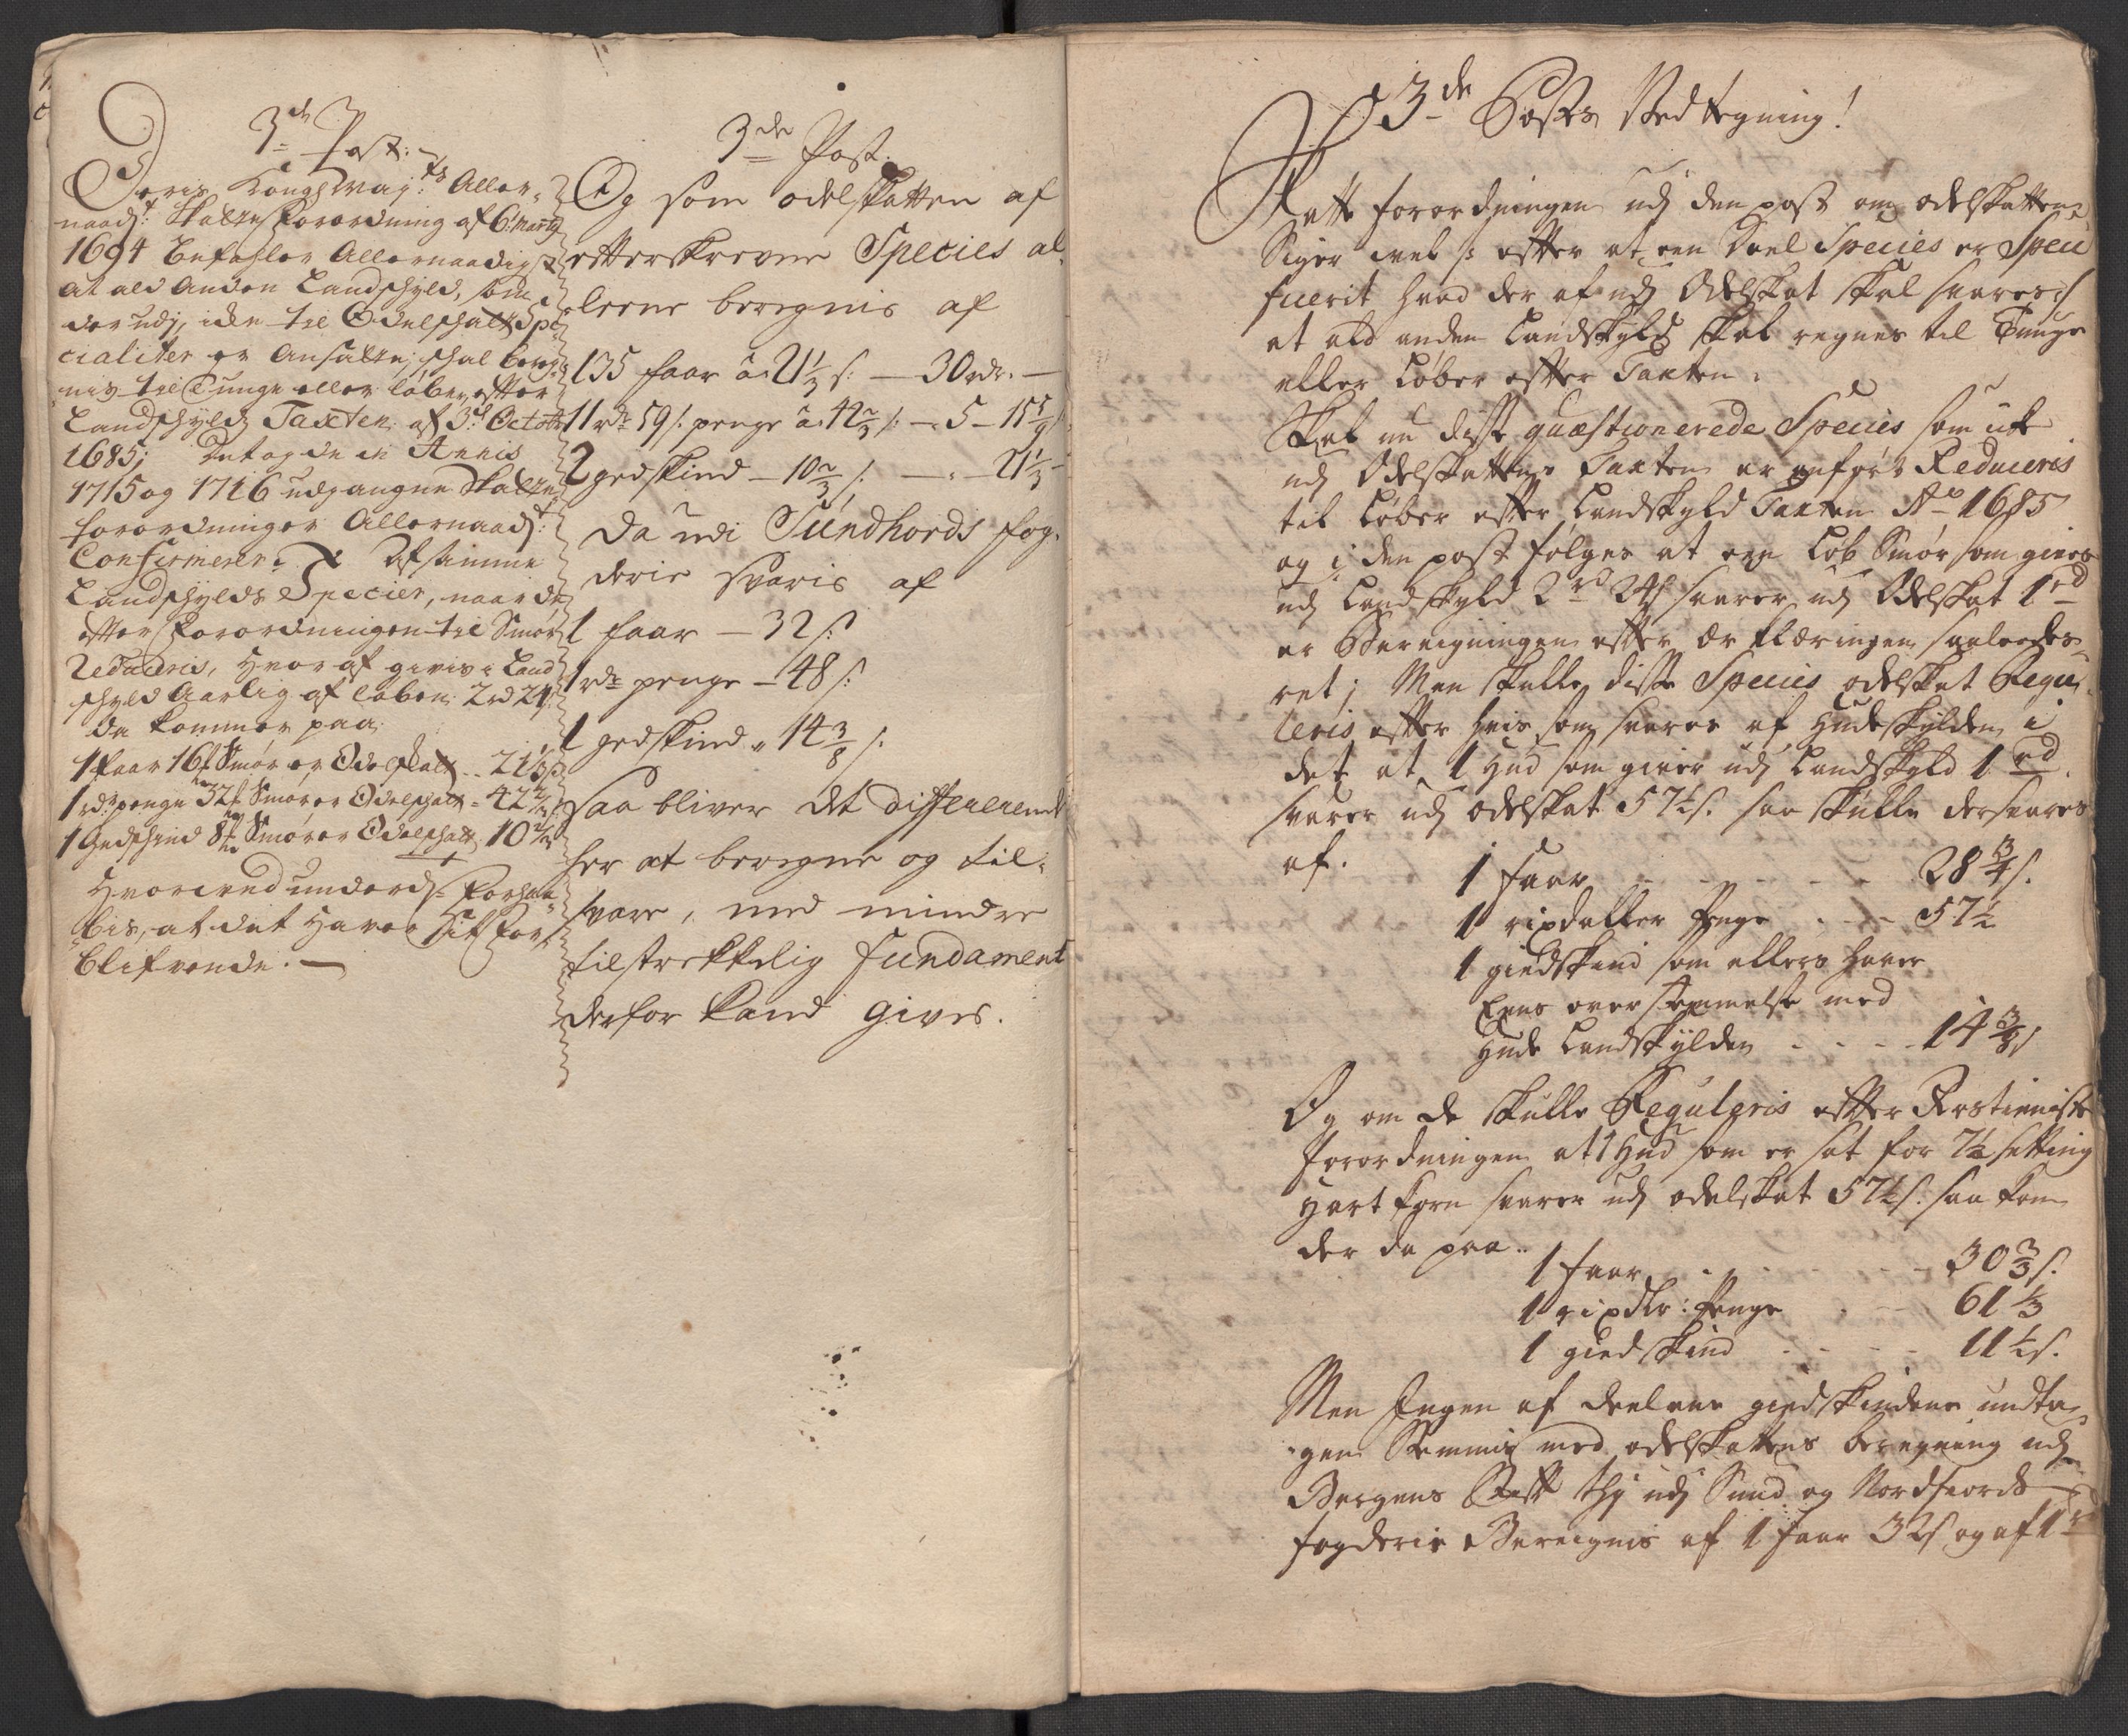 3de Post:
Deris Kongl May:ts Aller-
naad:st Skatte forordning af 6: Marty
1694 befahler Allernaadigst
at ald Anden Landschyld, som
der udj, iche til Odelschatt Spe-
cialiter er Ansatte; schal bereg-
nis til Tunge eller løber, efter
Landschylds Taxten af 3:de Octobr
1685; Det og de in Annis
1715 og 1716 udgangne Skatte
forordninger Allernaadst:
Confirmerer: Af samme
Landschylds Species, naar de
effter forordningen til Smør
Reduceris, Hvor af givis i Land-
schyld Aarlig af løben 2 rd 24 s
da kommer paa
1 faar 16 m Smør er Odelschatt .. 21 1/3 s
1 rd penge 32 m Smør er Odelschatt - 42 2/3 s
1 Gedschind 8 m Smør er Odelschatt 10 2/3 s
Hvorved underd:st forhaa-
bis, at det Haver sit for-
blifvende.
3de Post.
Og som odelskatten af
efterskrevne Species al-
leene beregnis af
135 faar à 21 1/3 s: — 30 rdr. —
11 rdr 59 s. penge à 42 2/3 s: — 5 — 15 5/9
2 gedskind — 10 2/3 s: — " — 21 1/3
da udi Sundhords fog-
derie svaris af
1 faar — 32 s:
1 rdr penge — 48 s:
1 gedskind " 14 3/8 s:
saa bliver det differerendt
her at beregne og til-
svare, med mindre
tilstrekkelig fundament
derfor kand gives.
3de Posts Vedtegning!
Rette forordningen udj den post om odelskatten
Siger vel /: efter at een Deel Species er Speci-
ficerit hvad der af udj Odelskat skal svares :/
at ald anden Landskyld skal regnes til Tunge
eller Løber efter Taxten.
Skal nu disse quæstionerede Species som icke
udj Odelskattens Taxten er anført Reduceris
til Løber efter Landskyld Taxten Ao 1685
og i den post følges at een Løb Smør som gives
udj Landskyld 2 rd 24 s svarer udj Odelskat 1 rd
er Beregningen efter Erklæringen saaledes
ret; Men skulle disse Species odelskat Regu-
leris efter hvis som svares af Hudeskylden i
det at 1 Hud som giver udj Landskyld 1 rd
svarer udj odelskat 57 1/2 s. saa skulle der svares
af.
1 faar - - - - - 28 3/4 s.
1 rixdaller Penge . . . 57 1/2
1 giedskind som ellers haver
Eens overstemmelse med
Hude Landskylden - - - 14 3/8 s
Og om de skulle Reguleris efter
forordningen at 1 Hud som er sat for 7 1/2 setting
Hart korn svarer udj odelskat 57 1/2 s. saa kom
der da paa..
1 faar - - - - 30 2/3 s.
1 rixdlr: Penge . . 61 1/3
1 giedskind - - - - 11 1/2 s.
Men Ingen af deelene giedskindene undta-
gen Stemmer med odelskattens beregning udj
Bergens Stift thj udj Sund og Nordfiords
fogderie Beregnis af 1 faar 32 s og af 1 rd